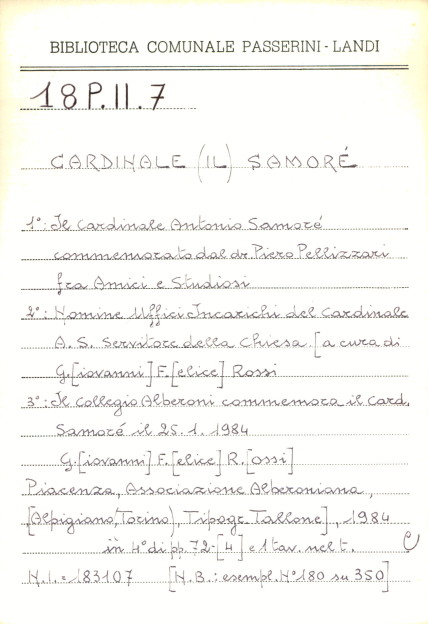 BIBLIOTECA COMUNALE PASSERINI-LANDI
18P.II.7
CARDINALE (IL) SAMORÉ
1°: Il Cardinale Antonio Samoré
commemorato dal dr. Piero Pellizzari
fra Amici e Studiosi
2°: Nomine Uffici Incarichi del Cardinale
A. S. Servitore della Chiesa. [a cura di
G.[iovanni] F.[elice] Rossi
3°: Il Collegio Alberoni commemora il Card.
Samoré il 25.1.1984
G.[iovanni] F.[elice] R.[ossi]
Piacenza, Associazione Alberoniana,
[Alpigiano, Torino), Tipogr. Tallone], 1984
in 4° di pp. 72-[4] e 1 tav. nel t.
N.I. e 183107 [N.B.: esempl. N° 180 su 350]